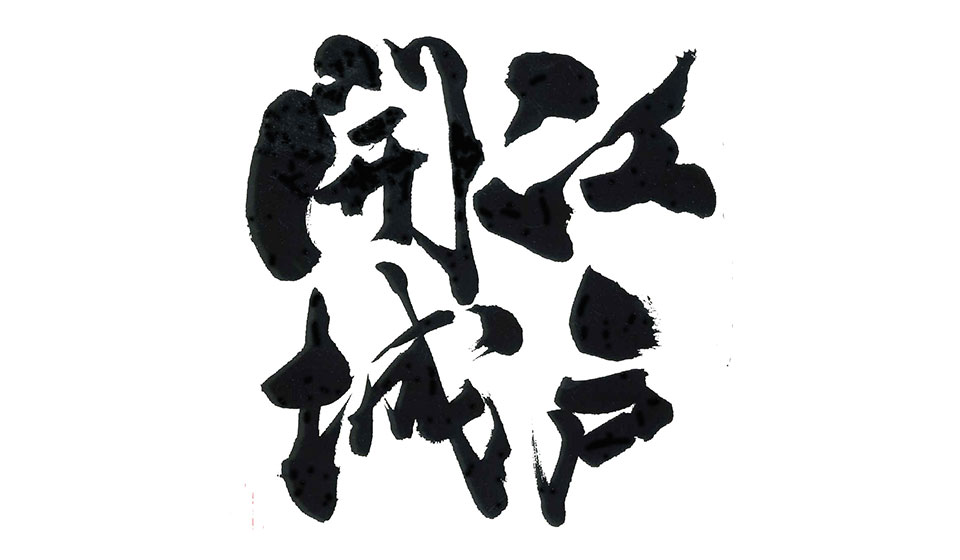 江戸
開城